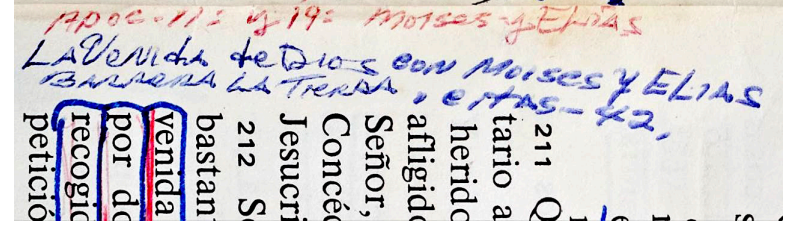 Apoc-11: y 19: Moises y ELIAS
LA Venida de Dios con Moises y ELIAS
BARRERA LA TIERRA,
211 Q
tario a
herido
afligido
Señor,
Concéd
Jesucri
212 S
bastan
venida
por do
recogid
petició